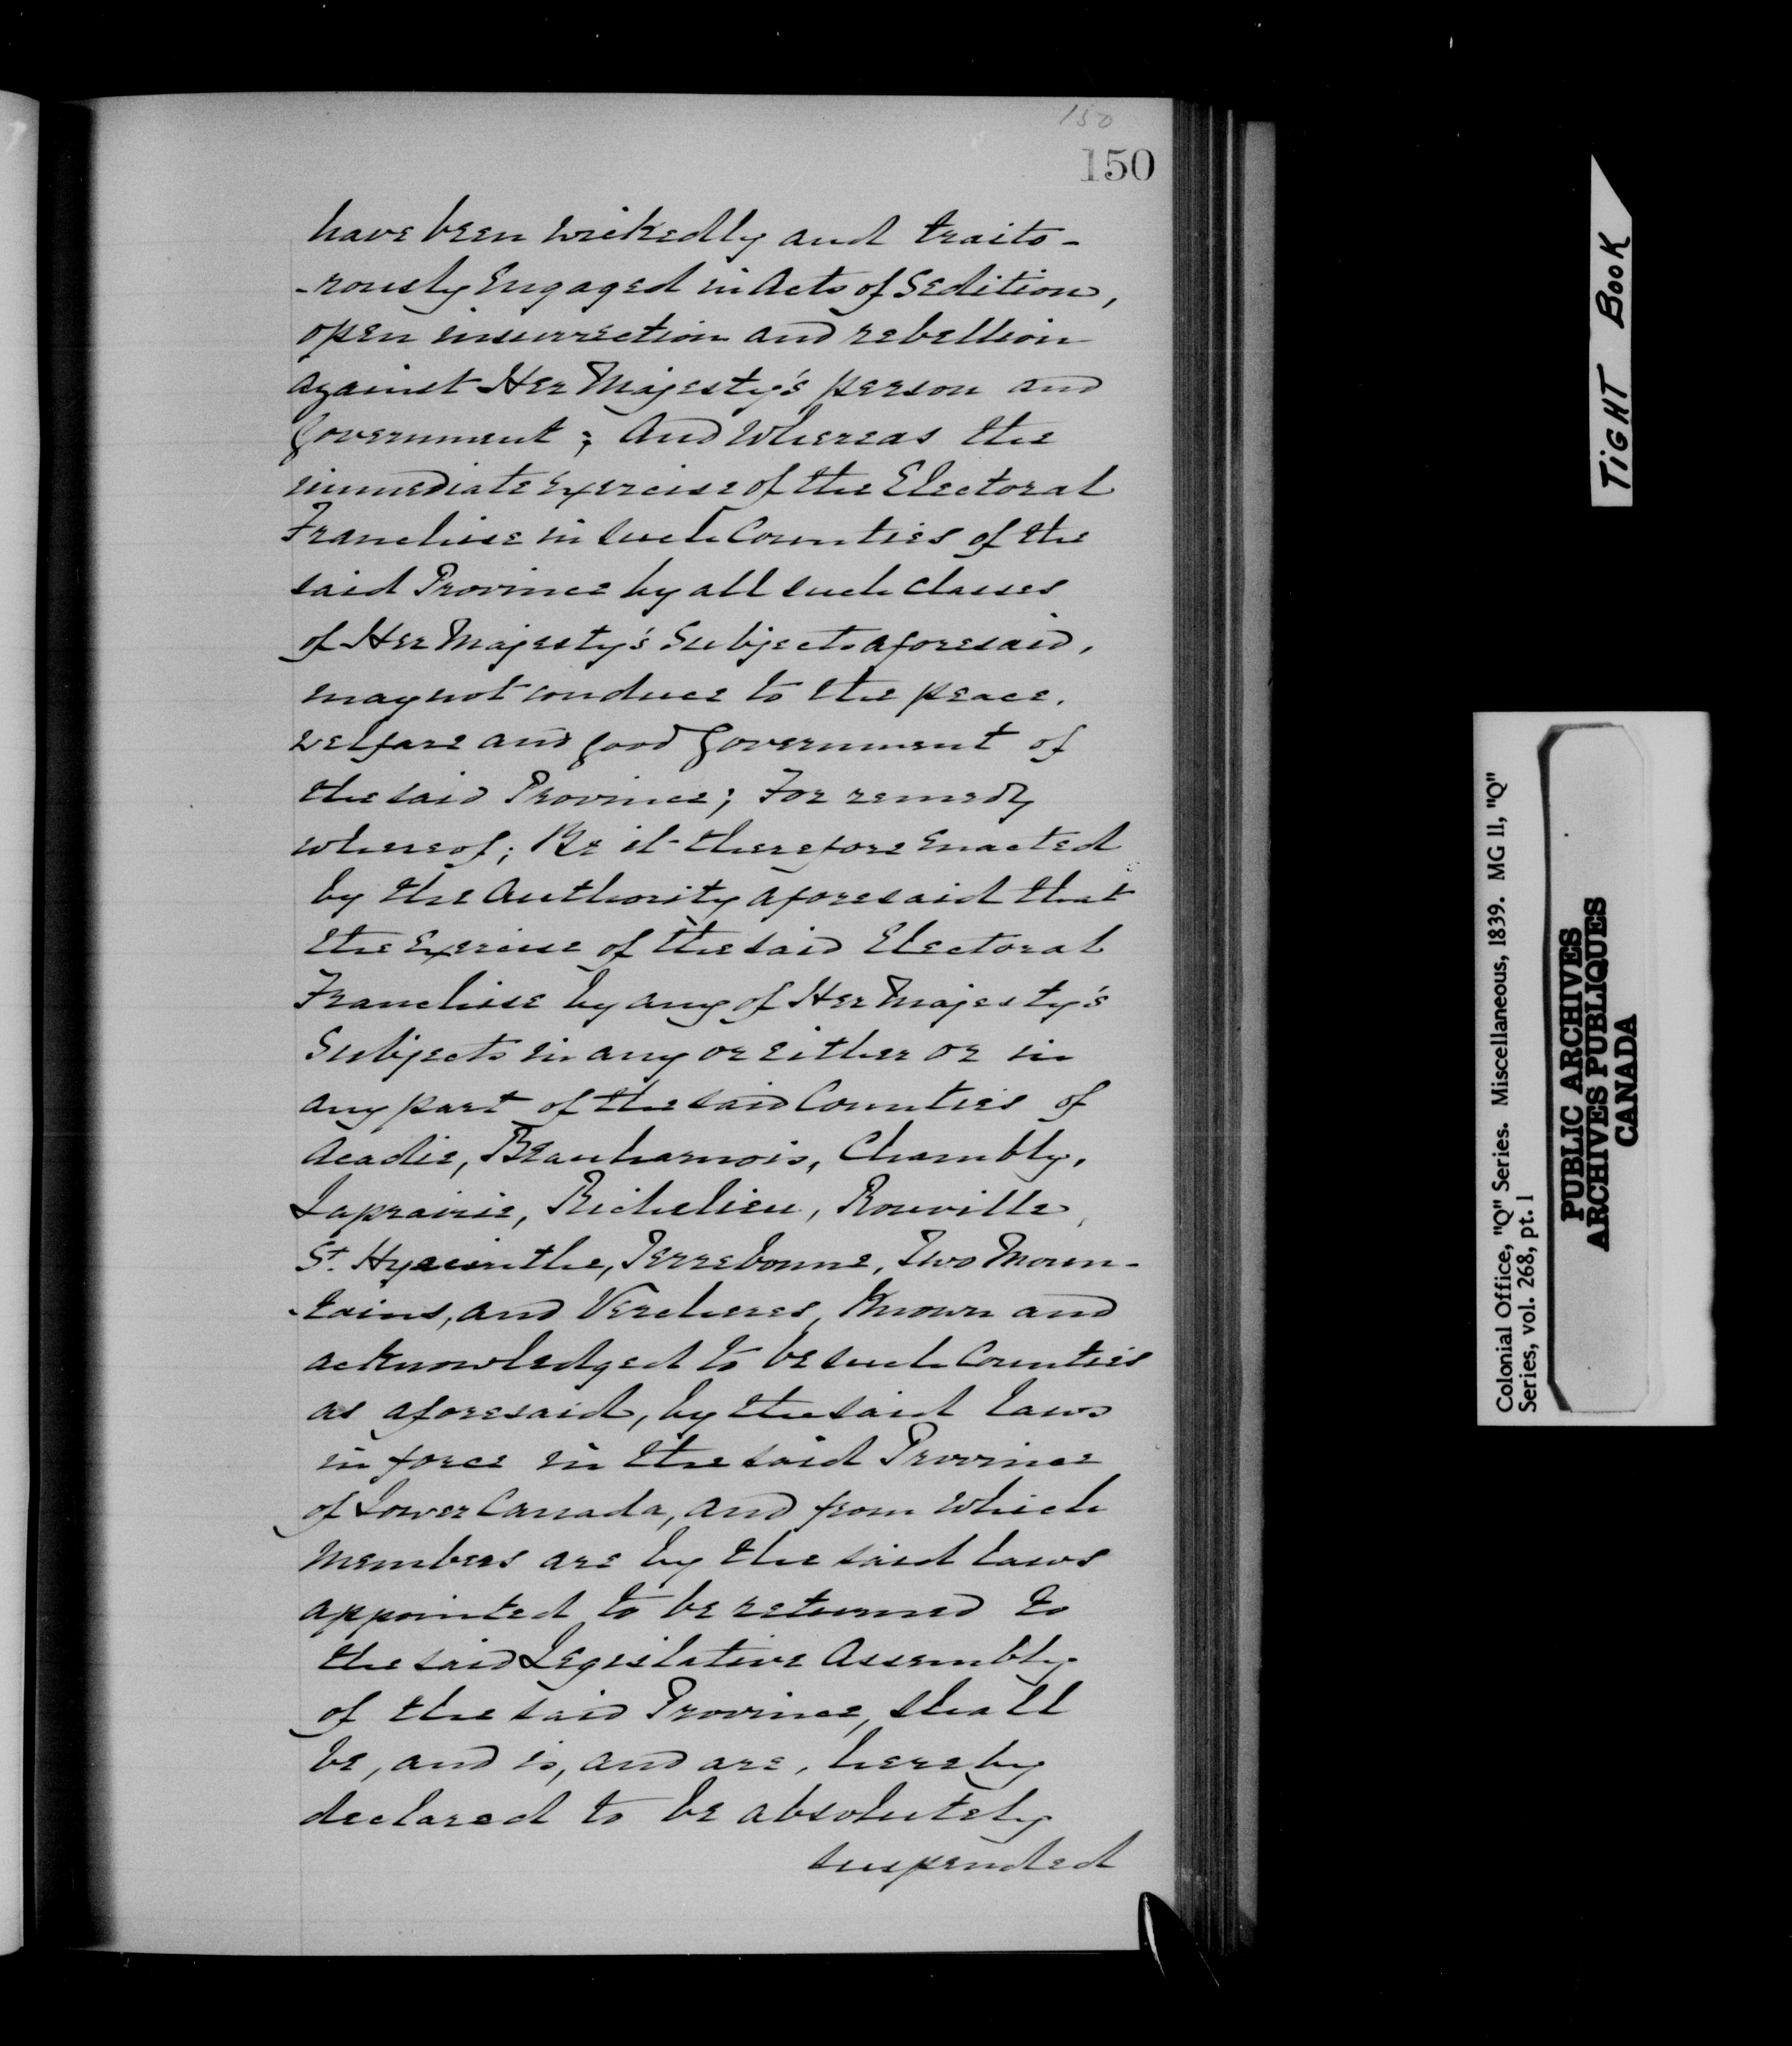 150
150
have been wickedly and traito-
-rously Engaged in Acts of Sedition,
open insurrection and rebellion
against Her Majesty's person and
Government; And Whereas the
immediate Exercise of the Electoral
Franchise in such Counties of the
said Province by all such classes
of Her Majesty's Subjects aforesaid,
may not conduce to the peace,
welfare and good Government of
the said Province; For remedy
whereof; Be it therefore Enacted
by the Authority aforesaid that
the Exercise of the said Electoral
Franchise by any of Her Majesty's
Subjects in any or either or in
any part of the said Counties of
Acadie, Beauharnois, Chambly,
Laprairie, Richelieu, Rouville,
St. Hyacinthe, Terrebonne, Two Moun-
-tains, and Vercheres, Known and
acknowledged to be such Counties
as aforesaid, by the said laws
in force in the said Province
of Lower Canada, and from which
Members are by the said laws
appointed to be returned to
the said Legislative Assembly
of the said Province, shall
be, and is, and are, hereby
declared to be absolutely
suspended
TIGHT BOOK
Colonial Office, "Q" Series. Miscellaneous, 1839. MG 11, "Q"
Series, vol. 268, pt. 1
PUBLIC ARCHIVES
ARCHIVES PUBLIQUES
CANADA